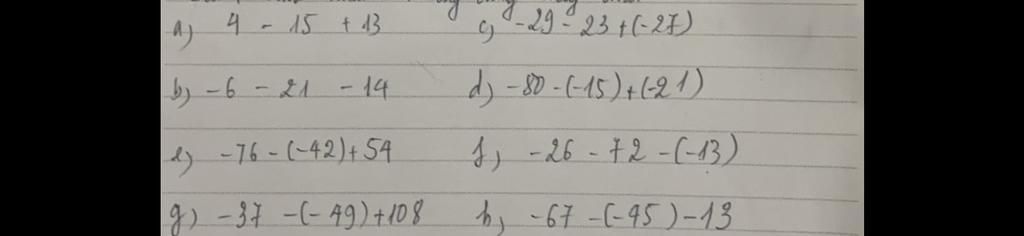 a) 4 - 15 + 13 c) -29 - 23 + (-27)
b) -6 - 21 - 14 d) -80 - (-15) + (-21)
e) -76 - (-42) + 54 f) -26 - 72 - (-13)
g) -37 - (-49) + 108 h) -67 - (-95) - 13